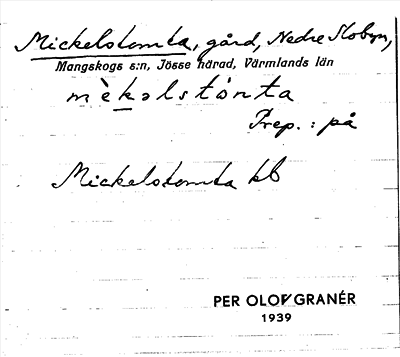 Mickelstomta, gård, Nedre Slobyn,
Mangskogs s:n, Jösse härad, Värmlands län
mè̀kəlstònta
Prep. : på
Mickelstomta kb
PER OLOF GRANÉR
1939